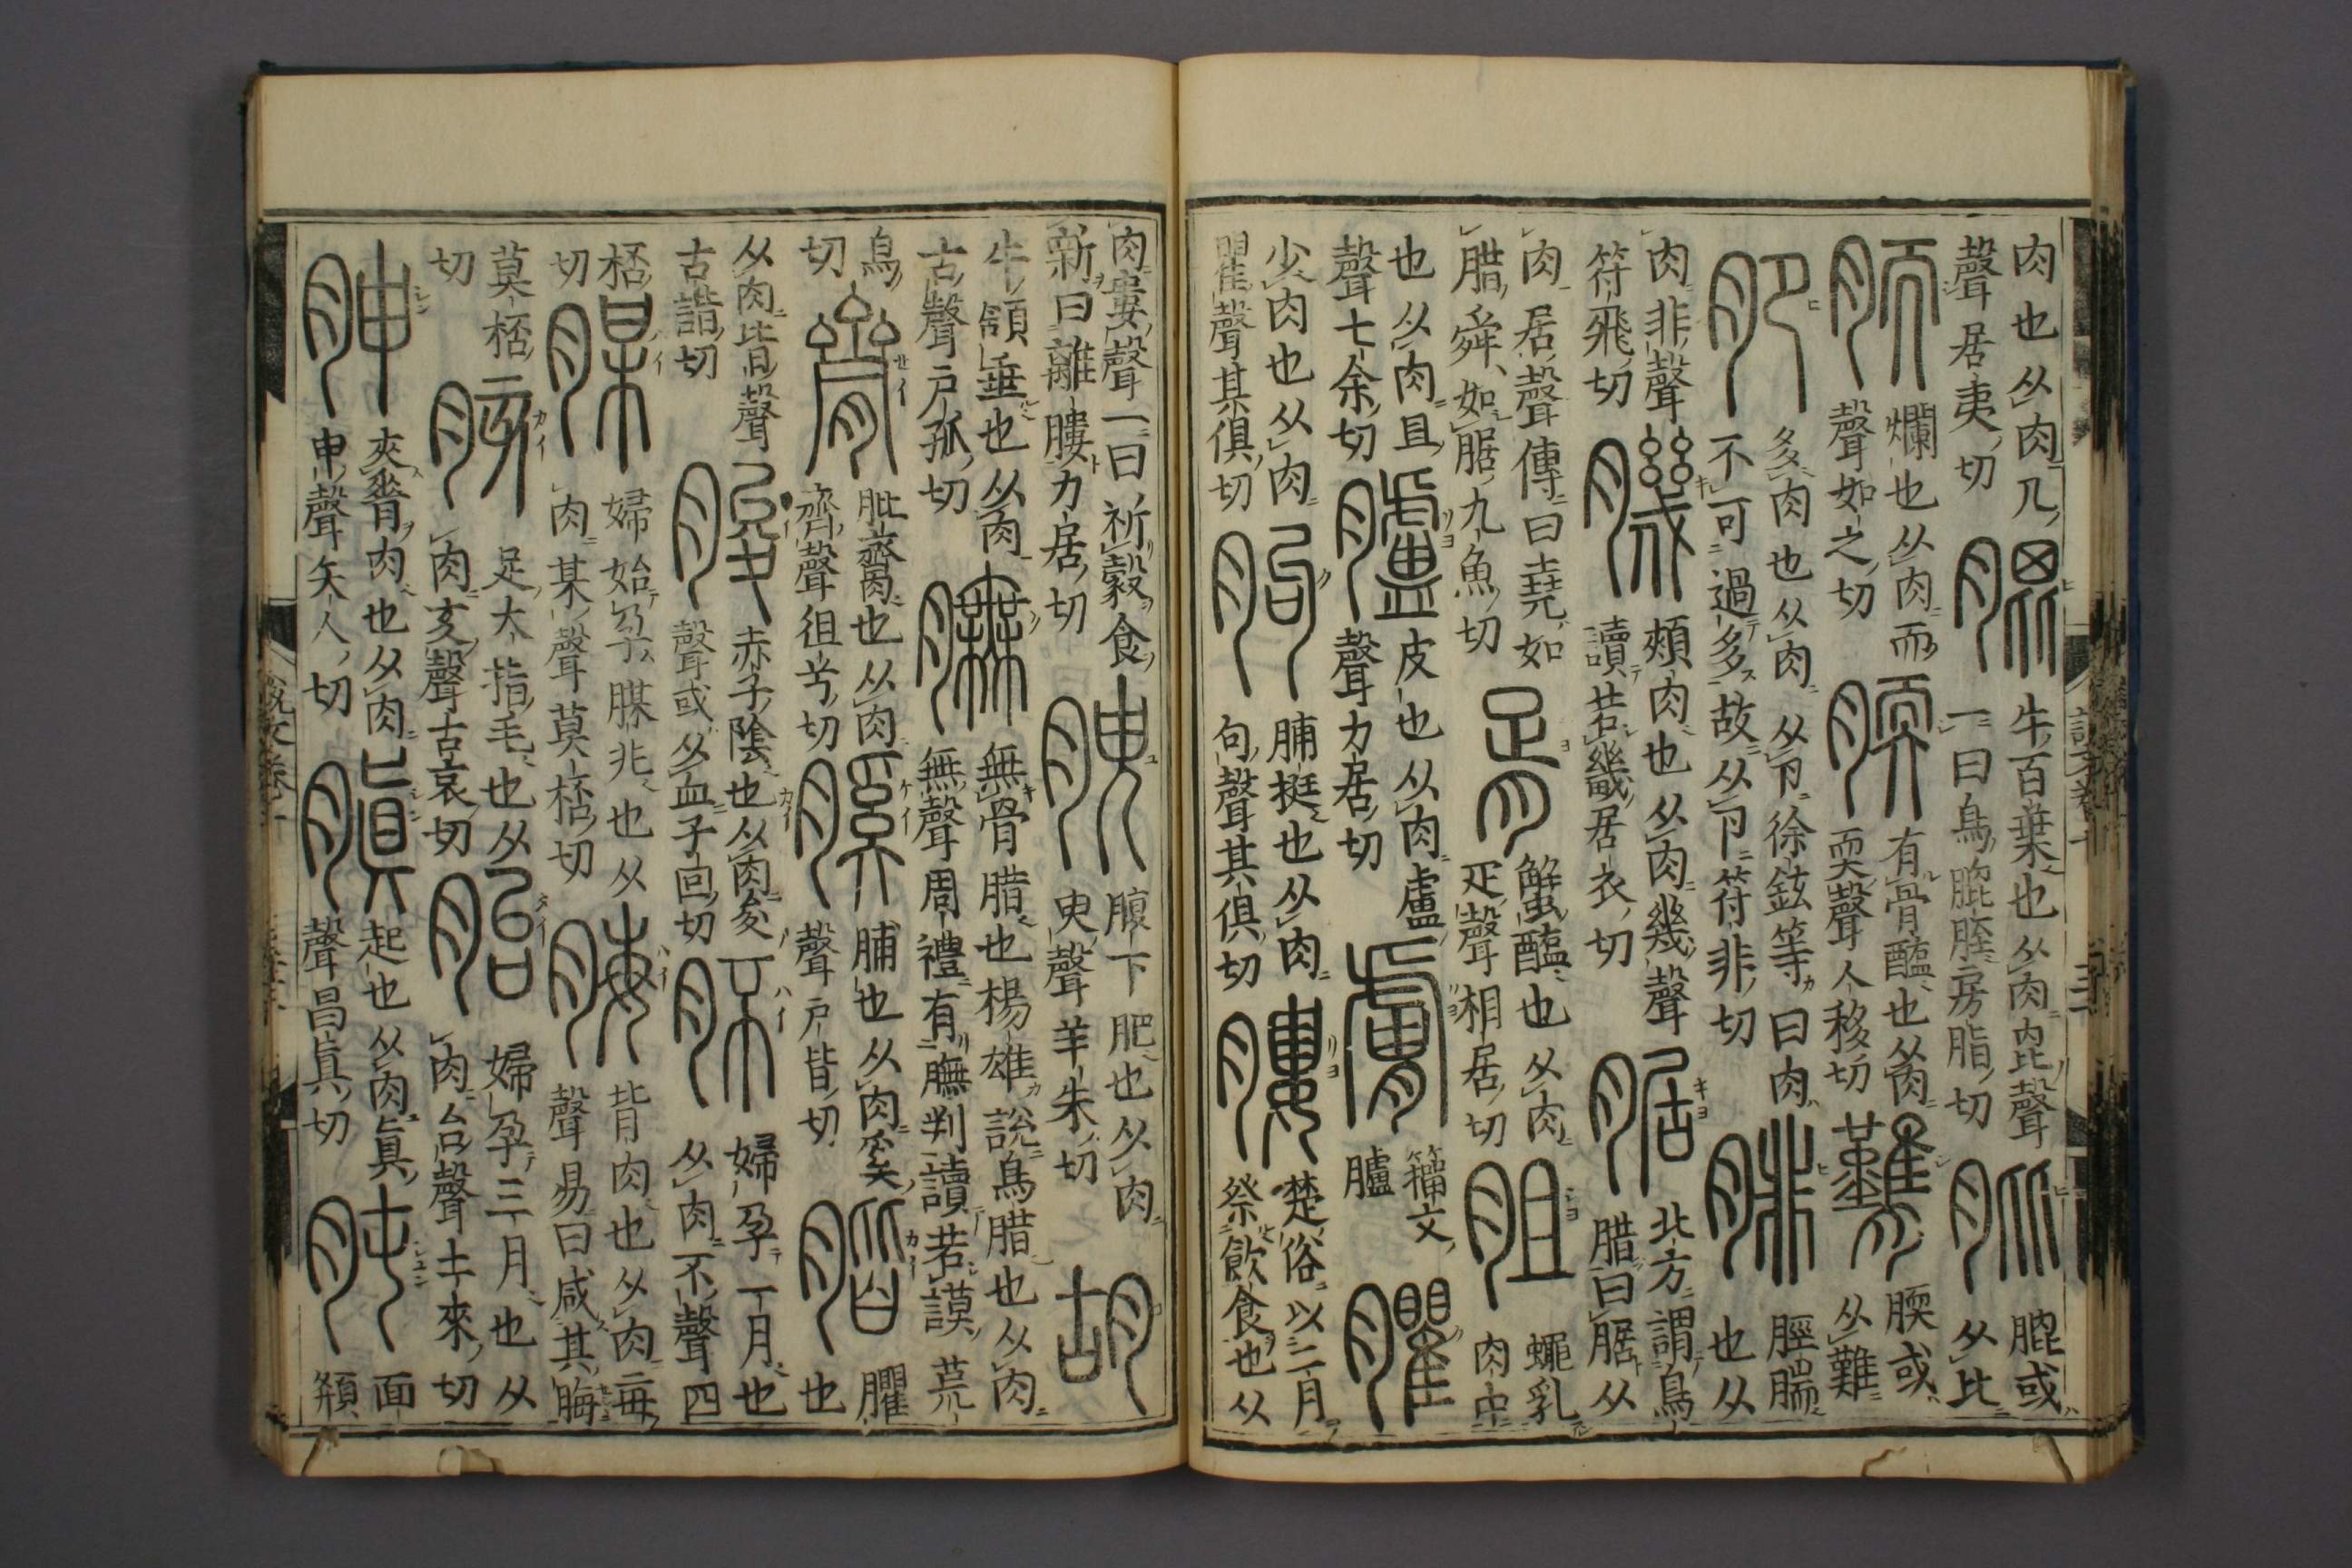 肉也从肉几聲居夷切膍牛百葉也从肉𣬉聲一曰鳥膍胵房脂切肶膍或从比
胹爛也从肉而聲如之切腝有骨醢也从肉耎聲人移切𦠳腝或从難
肥多肉也从肉从卪徐鉉等曰肉不可過多故从卪符非切腓脛腨也从
肉非聲符飛切𦠄頰肉也从肉幾聲讀若畿居衣切腒北方謂鳥腊曰腒从
肉居聲傳曰堯如腊舜如腒九魚切胥蟹醢也从肉疋聲相居切胆蠅乳肉中
也从肉且聲七余切臚皮也从肉盧聲力居切膚籀文臚臞
少肉也从肉瞿聲其俱切朐脯挺也从肉句聲其俱切膢楚俗以二月祭飲食也从
肉婁聲一曰祈穀食新曰離膢力居切腴腹下肥也从肉臾聲羊朱切胡
牛頷垂也从肉古聲戶孤切膴無骨腊也楊雄說鳥腊也从肉無聲周禮有膴判讀若謨荒
烏切臍肶齎也从肉齊聲徂兮切膎脯也从肉奚聲戶皆切䐤臞也
从肉皆聲古諧切朘赤子陰也从肉夋聲或从血子回切肧婦孕一月也从肉不聲四
桮切腜婦始孕腜兆也从肉某聲莫桮切脢背肉也从肉每聲易曰咸其脢
莫桮切胲足大指毛也从肉亥聲古哀切胎婦孕三月也从肉台聲土來切
胂夾脊肉也从肉申聲矢人切䐜起也从肉真聲昌真切肫面頯